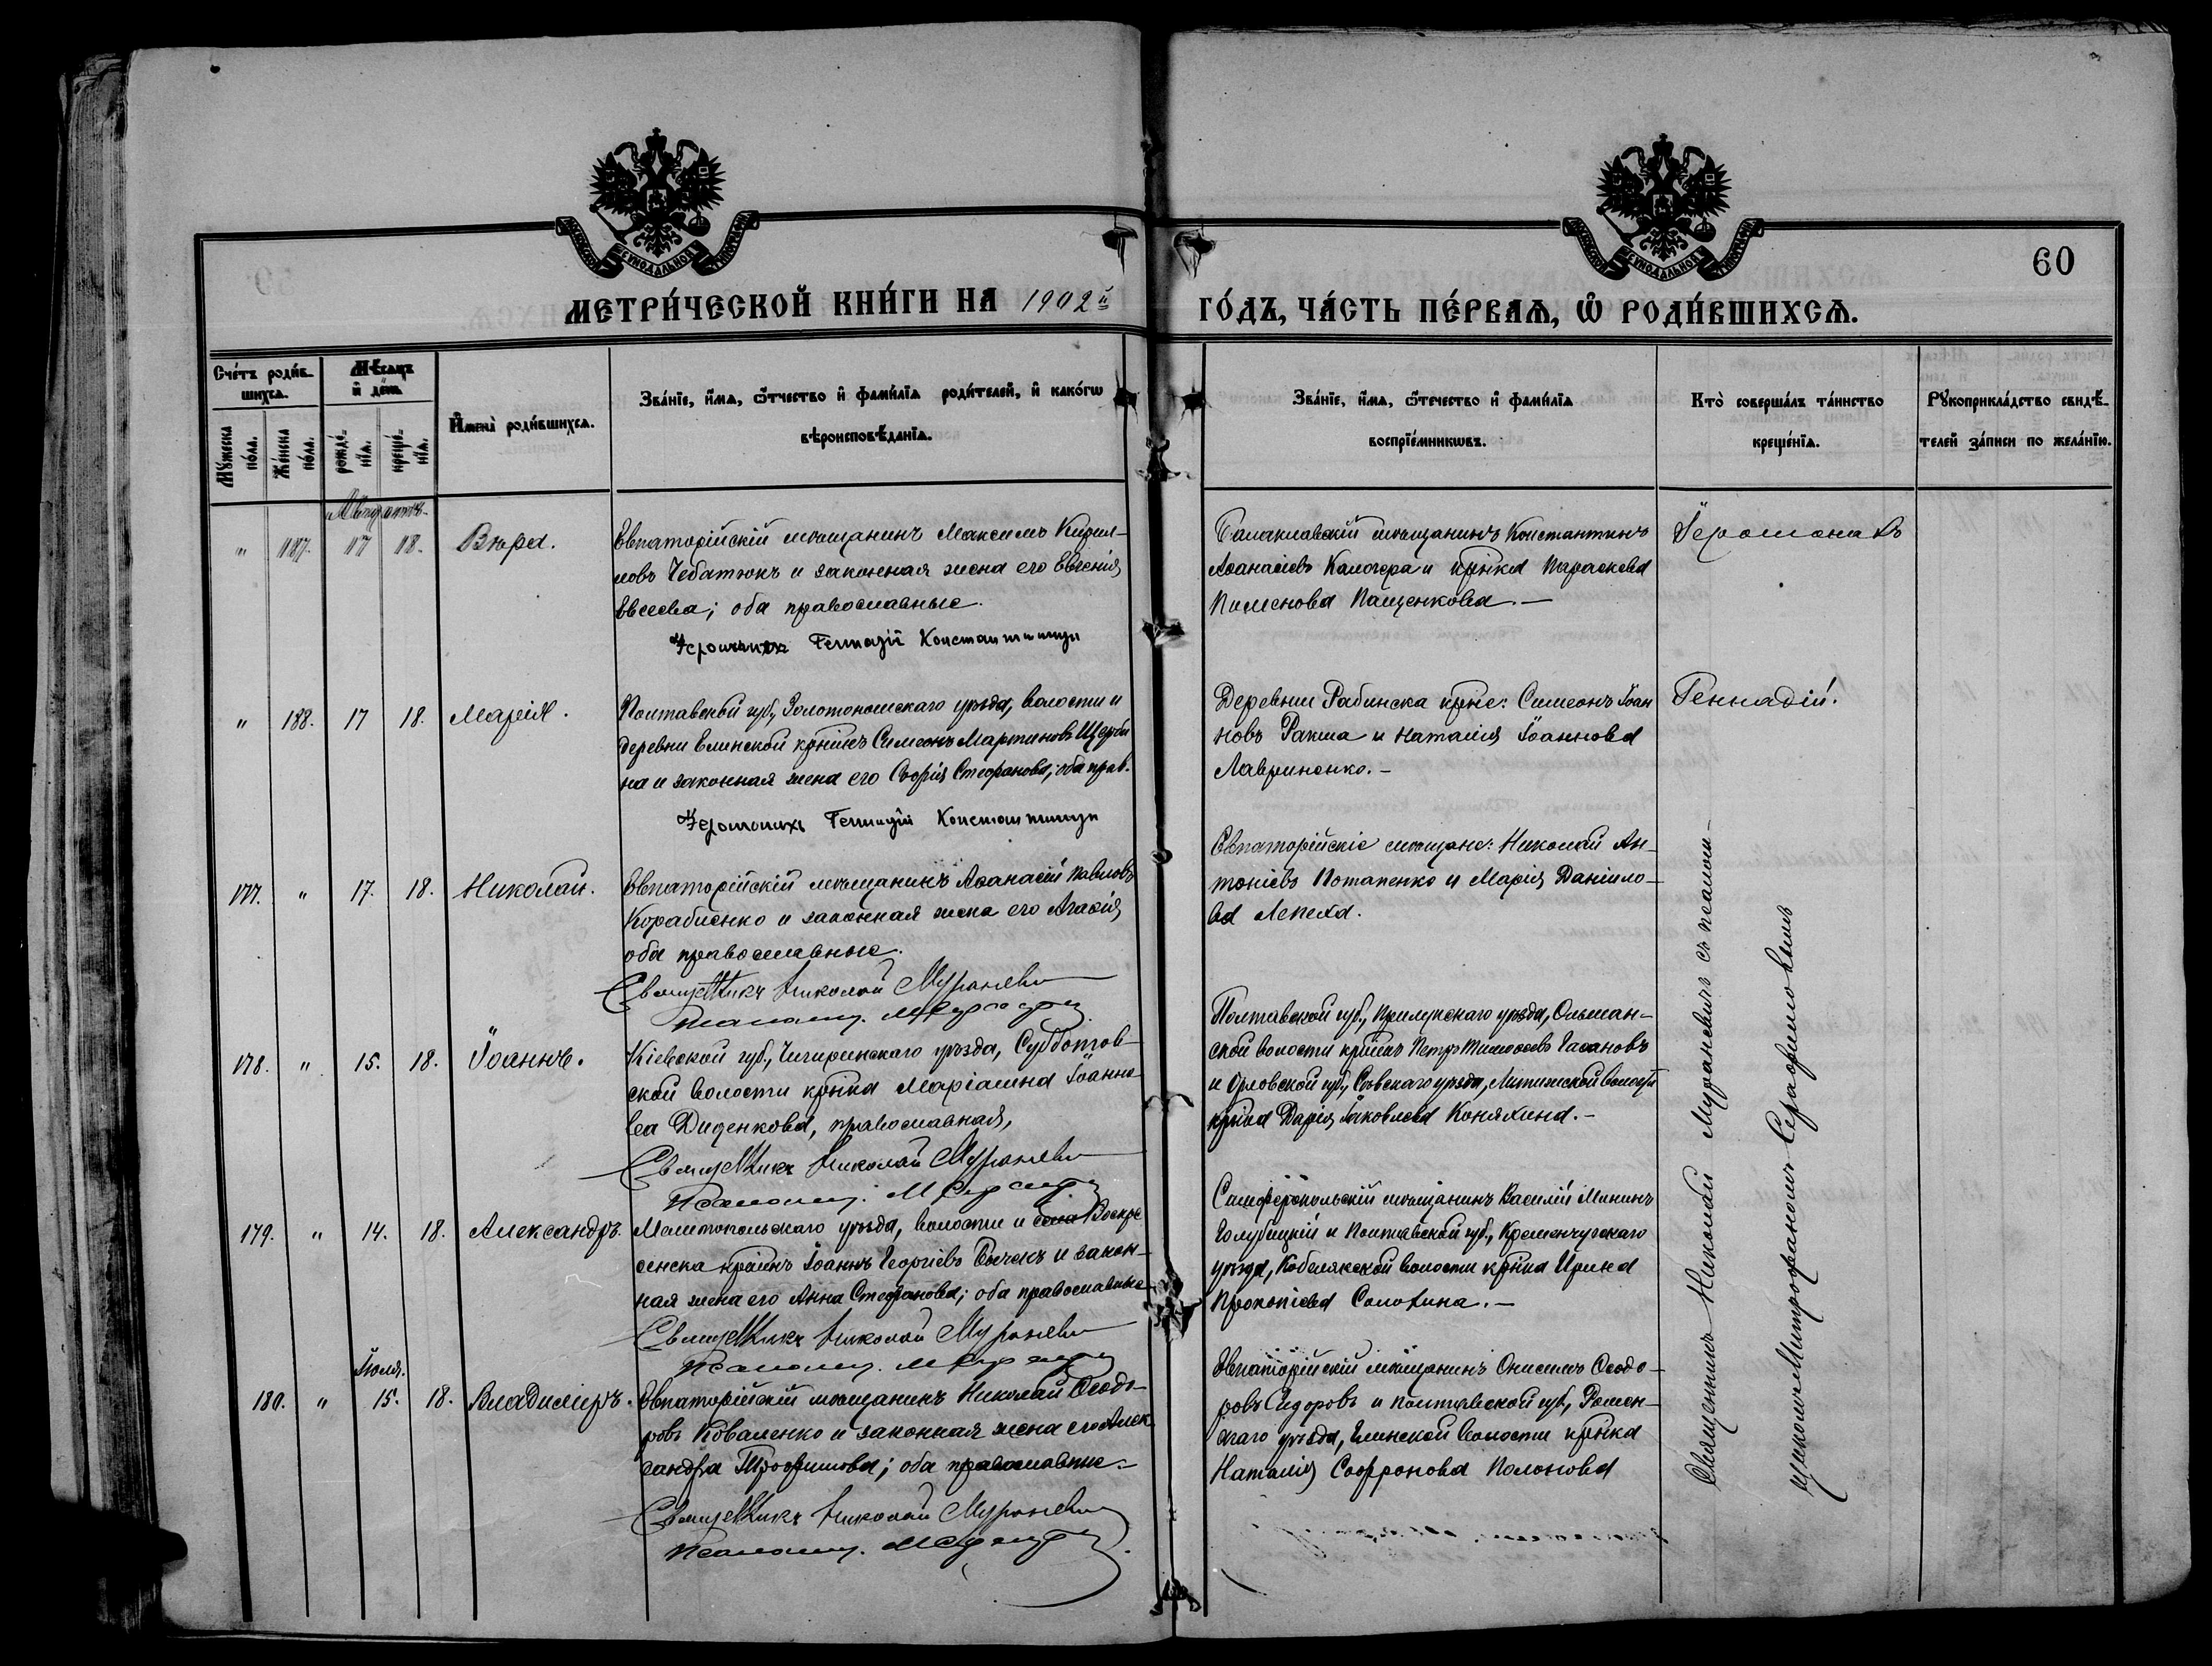 60
МЕТРИ́ЧЕСКОЙ КНИ́ГИ НА 1902й ГО́ДЪ, ЧА́СТЬ ПЕ́РВАѦ, Ѿ РОДИ́ВШИХСѦ.
Сче́тъ роди́в-
шихсѧ.
Мѣ́сяцъ
и҆ де́нь.
Мꙋ́жеска
по́ла.
Же́нска
по́ла.
рожде́-
нїѧ.
креще́-
нїѧ.
И҆мена̀ роди́вшихсѧ.
Зва́нїе, и҆́мѧ, ѻ҆́тчество и҆ фами́лїѧ роди́телей, и҆ како́гѡ
вѣроисповѣ́данїѧ.
Зва́нїе, и҆́мѧ, ѻ҆́течество и҆ фами́лїѧ
воспрїе́мникѡвъ.
Кто̀ соверша́лъ та́инство
креще́нїѧ.
Рꙋкоприкла́дство свидѣ́-
телей за́писи по жела́нїю.
Августъ
" 187. 17 18. Вѣра.
Евпаторійскій мѣщанинъ Максимъ Кирил-
ловъ Чебатюкъ и законная жена его Евгенія
Евсеева; оба православные.
Іеромонахъ Геннадій
Балаклавскій мѣщанинъ Константинъ
Аѳанасіевъ Калочера и кр҃нка Параскева
Пименова Пащенкова.—
Іеромонахъ
" 188. 17 18. Марія.
Полтавской губ., Золотоношскаго уѣзда, волости и
деревни Еминской кр҃нинъ Симеонъ Мартиновъ Щерби
на и законная жена его Софія Стефанова; оба прав.
Іеромонахъ Геннадій
Деревни Рабинска кр҃не: Симеонъ Іоан
новъ Ракша и Наталія Іоаннова
Лавриненко.-
Геннадій.
177. " 17. 18. Николай.
Евпаторійскій мѣщанинъ Аѳанасій Павловъ
Корабленко и законная жена его Агаѳія,
оба православные.
Священникъ Николай Мураневи
Псаломщ.
Евпаторійскіе мѣщане: Николай Ан-
тоніевъ Потапенко и Марія Даніило-
ва Лепеха.
178. " 15. 18. Іоаннъ.
Кіевской губ., Чигиринскаго уѣзда, Субботов-
ской волости кр҃нка Маріамна Іоанно
ва Диденкова, православная,
Священникъ Николай Мураневи
Псаломщ.
Полтавской губ., Прилукскаго уѣзда, Ольшан-
ской волости кр҃нинъ Петръ Тимоѳеевъ Гасановъ
и Орловской губ., Сѣвскаго уѣзда, Литижской волости
кр҃нка Дарія Іаковлева Коняхина.-
179. " 14. 18. Александръ.
Мелитопольскаго уѣзда, волости и села Воскре
сенска кр҃нинъ Іоаннъ Георгіевъ Бычекъ и закон-
ная жена его Анна Стефанова; оба православные
Священникъ Николай Мураневи
Псаломщ.
Симферопольскій мѣщанинъ Василій Мининъ
Голубицкій и Полтавской губ., Кременчугскаго
уѣзда, Кобелякской волости кр҃нка Ирина
Прокопіева Солохина.-
Іюля.
180. " 15. 18. Владиміръ.
Евпаторійскій мѣщанинъ Николай Ѳеодо-
ровъ Коваленко и законная жена его Алек
сандра Трофимова; оба православные.
Священникъ Николай Мураневи
Псаломщ.
Евпаторійскій мѣщанинъ Онисимъ Ѳеодо-
ровъ Сидоровъ и Полтавской губ., Ромен-
скаго уѣзда, Глинской волости кр҃нка
Наталія Софронова Полонова
Священникъ Николай Мураневичъ съ псалом-
щикомъ Митрофаномъ Серафимовымъ